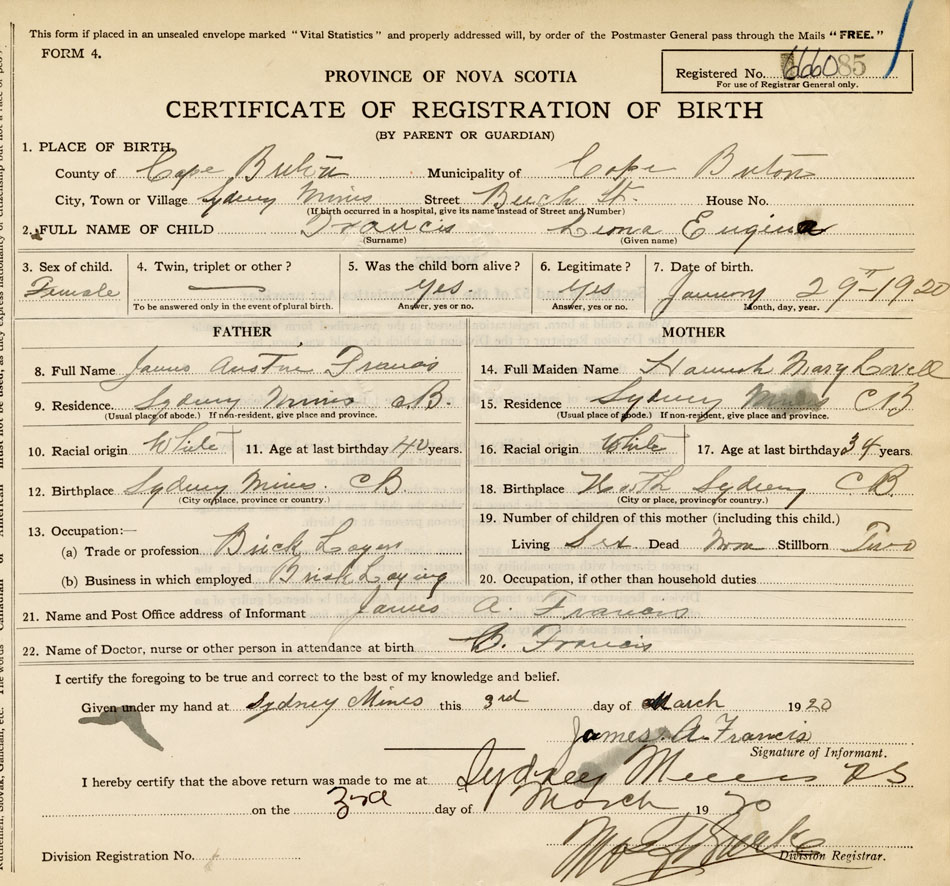 This form if placed in an unsealed envelope marked "Vital Statistics" and properly addressed will, by order of the Postmaster General pass through the Mails "FREE."
FORM 4.
Registered No. 66085
For use of Registrar General only.
PROVINCE OF NOVA SCOTIA
CERTIFICATE OF REGISTRATION OF BIRTH
(BY PARENT OR GUARDIAN)
1. PLACE OF BIRTH.
County of Cape Breton Municipality of Cape Breton
City, Town or Village Sydney Mines Street Beech St. House No.
(If birth occurred in a hospital, give its name instead of Street and Number)
2. FULL NAME OF CHILD Francis Leona Eugina
(Surname) (Given name)
3. Sex of child. 4. Twin, triplet or other? 5. Was the child born alive? 6. Legitimate? 7. Date of birth.
Female — Yes. Yes January 29th 1920
To be answered only in the event of plural birth. Answer, yes or no. Answer, yes or no. Month, day, year.
FATHER MOTHER
8. Full Name James Austin Francis 14. Full Maiden Name Hannah Mary Lovell
9. Residence. Sydney Mines CB 15. Residence Sydney Mines CB
(Usual place of abode.) If non-resident, give place and province. (Usual place of abode.) If non-resident, give place and province.
10. Racial origin White 11. Age at last birthday 40 years. 16. Racial origin White 17. Age at last birthday 34 years.
12. Birthplace Sydney Mines. CB 18. Birthplace North Sydney CB.
(City or place, province or country.) (City or place, province or country.)
13. Occupation:— 19. Number of children of this mother (including this child.)
(a) Trade or profession Brick Layer Living Six Dead None Stillborn Two
(b) Business in which employed Brick Laying 20. Occupation, if other than household duties
21. Name and Post Office address of Informant James A. Francis
22. Name of Doctor, nurse or other person in attendance at birth B. Francis
I certify the foregoing to be true and correct to the best of my knowledge and belief.
Given under my hand at Sydney Mines this 3rd day of March 1920
James. A. Francis
Signature of Informant.
I hereby certify that the above return was made to me at Sydney Mines NS
on the 3rd day of March 1920
Division Registrar.
Division Registration No.